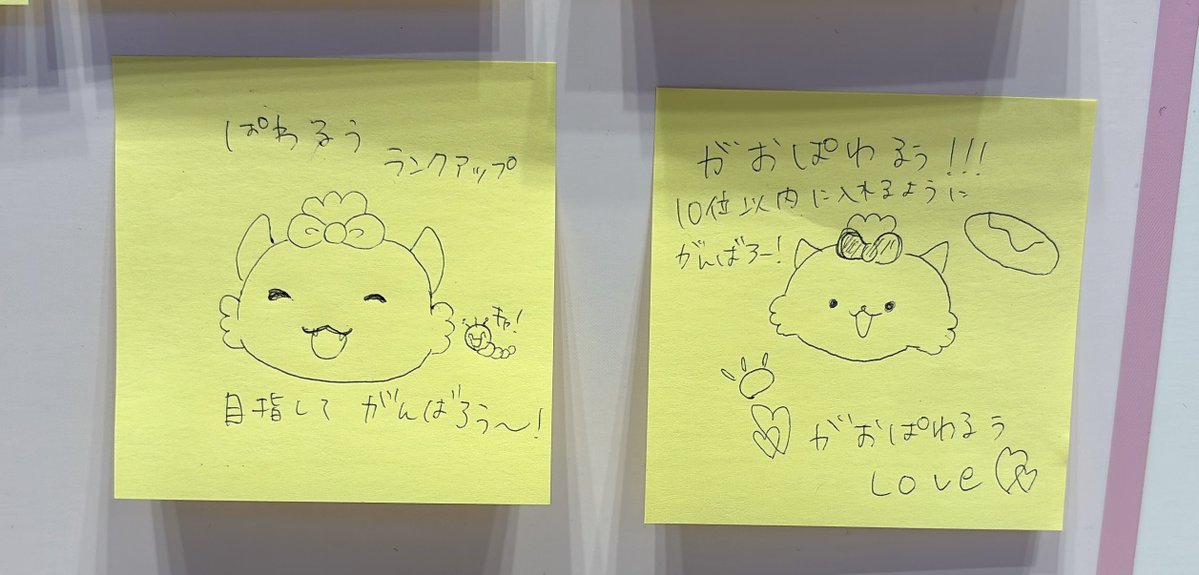 ぱわるぅ
ランクアップ
キャ!
目指して がんばろぅ〜!
がおぱわるぅ!!!
10位以内に入れるように
がんばろー!
がおぱわるぅ
Love